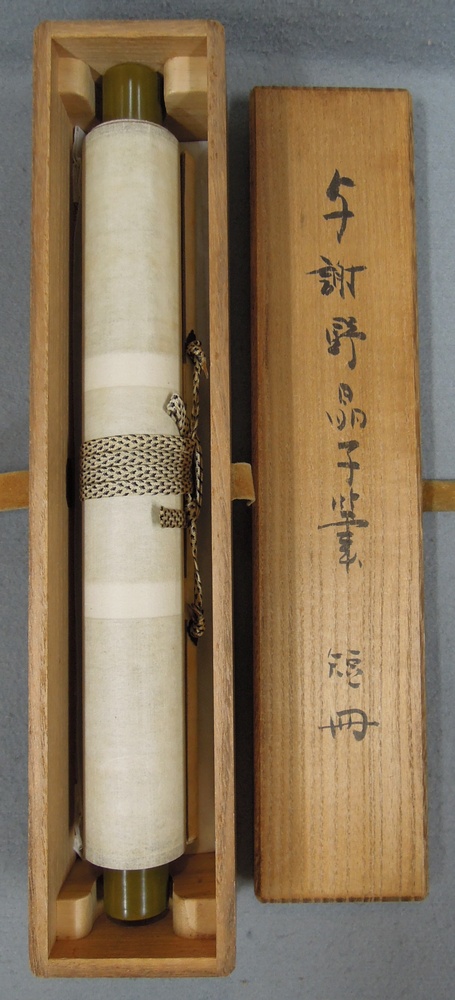 与謝野晶子筆 短冊